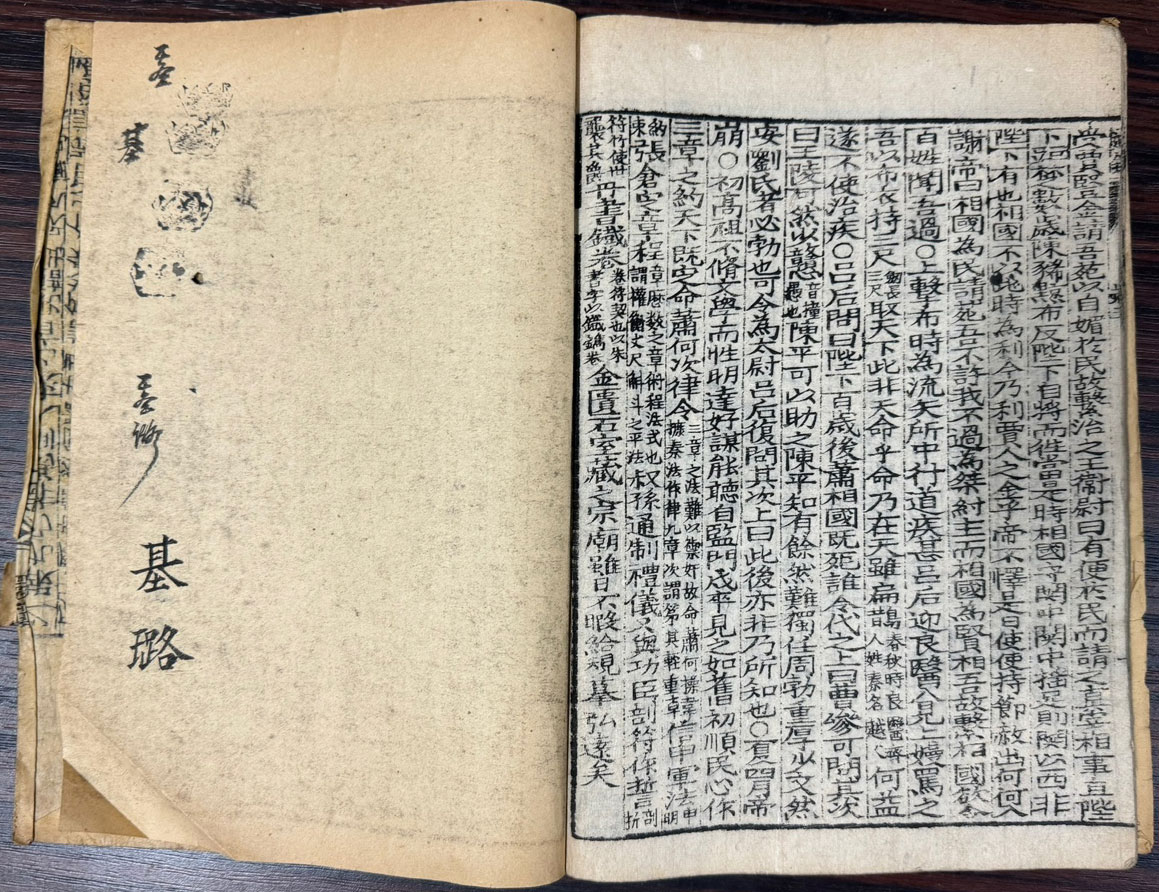 受賈竪金請吾苑以自媚於民故繫治之王衛尉曰有便於民而請之真宰相事且陛
下距楚數歲陳豨黥布反陛下自將而往當是時相國守關中關中搖足則關以西非
陛下有也相國不以此時為利今乃利賈人之金乎帝不懌是日使使持節赦出何何入
謝帝曰相國為民請苑吾不許我不過為桀紂主而相國為賢相吾故繫相國欲令
百姓聞吾過○上擊布時為流矢所中行道疾甚呂后迎良醫入見上嫚罵之
吾以布衣持三尺劒長三尺取天下此非天命乎命乃在天雖扁鵲春秋時良醫齊人姓秦名越人何益
遂不使治疾○呂后問曰陛下百歲後蕭相國既死誰令代之上曰曹參可問其次
曰王陵可然少戇音撞愚也陳平可以助之陳平知有餘然難獨任周勃重厚少文然
安劉氏者必勃也可令為太尉呂后復問其次上曰此後亦非乃所知也○夏四月帝
崩○初高祖不脩文學而性明達好謀能聽自監門戍卒見之如舊初順民心作
三章之約天下既定命蕭何次律令三章之法難以禦奸故命蕭何攈秦法作律九章次謂第其輕重韓信申軍法申明
約束張倉定章程章曆數之章術程法式也謂權衡丈尺斛斗之平法叔孫通制禮儀又與功臣剖符作誓剖折
符竹使世襲其爵丹書鐵券券符契也以朱書字以鐵鐫券金匱石室藏之宗廟雖日不暇給規摹弘遠矣
基
基
基璐